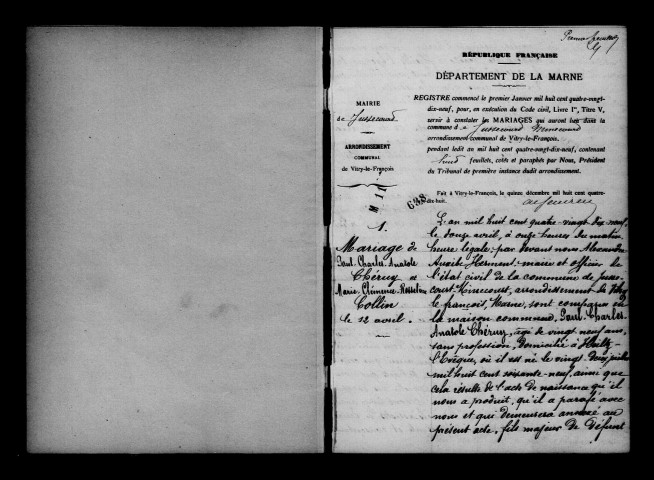 Premier feuillet
RÉPUBLIQUE FRANÇAISE
DÉPARTEMENT DE LA MARNE
MAIRIE
de Jussecourt
ARRONDISSEMENT
COMMUNAL
de Vitry-le-François
REGISTRE commencé le premier Janvier mil huit cent quatre-vingt-
dix-neuf, pour, en exécution du Code civil, Livre Ier, Titre V,
servir à constater les MARIAGES qui auront lieu dans la
commune de Jussecourt Minecourt
arrondissement communal de Vitry-le-François,
pendant ledit an mil huit cent quatre-vingt-dix-neuf, contenant
huit feuillets, cotés et paraphés par Nous, Président
du Tribunal de première instance dudit arrondissement.
Fait à Vitry-le-François, le quinze décembre mil huit cent quatre-
dix-huit.
638
1.
Mariage de
Paul-Charles-Anatole
Chéruy et
Marie-Clémence
Collin
le 12 avril.
L'an mil huit cent quatre-vingt-dix-neuf,
le douze avril, à onze heures du matin,
heure légale; par devant nous Alexandre
Hermant, maire et officier de
l'état civil de la commune de Jusse-
court-Minecourt, arrondissement de Vitry
le françois, Marne, sont comparu en
la maison commune, Paul-Charles-
Anatole Chéruy, âgé de vingt neuf ans,
sans profession, domicilié à Heiltz-
l'Evêque, où il est né le vingt
mil huit cent soixante-neuf, ainsi que
cela résulte de l'acte de naissance qu'il
nous a produit, qu'il a parafé avec
nous et qui demeurera annexé au
présent acte, fils majeur de défunt